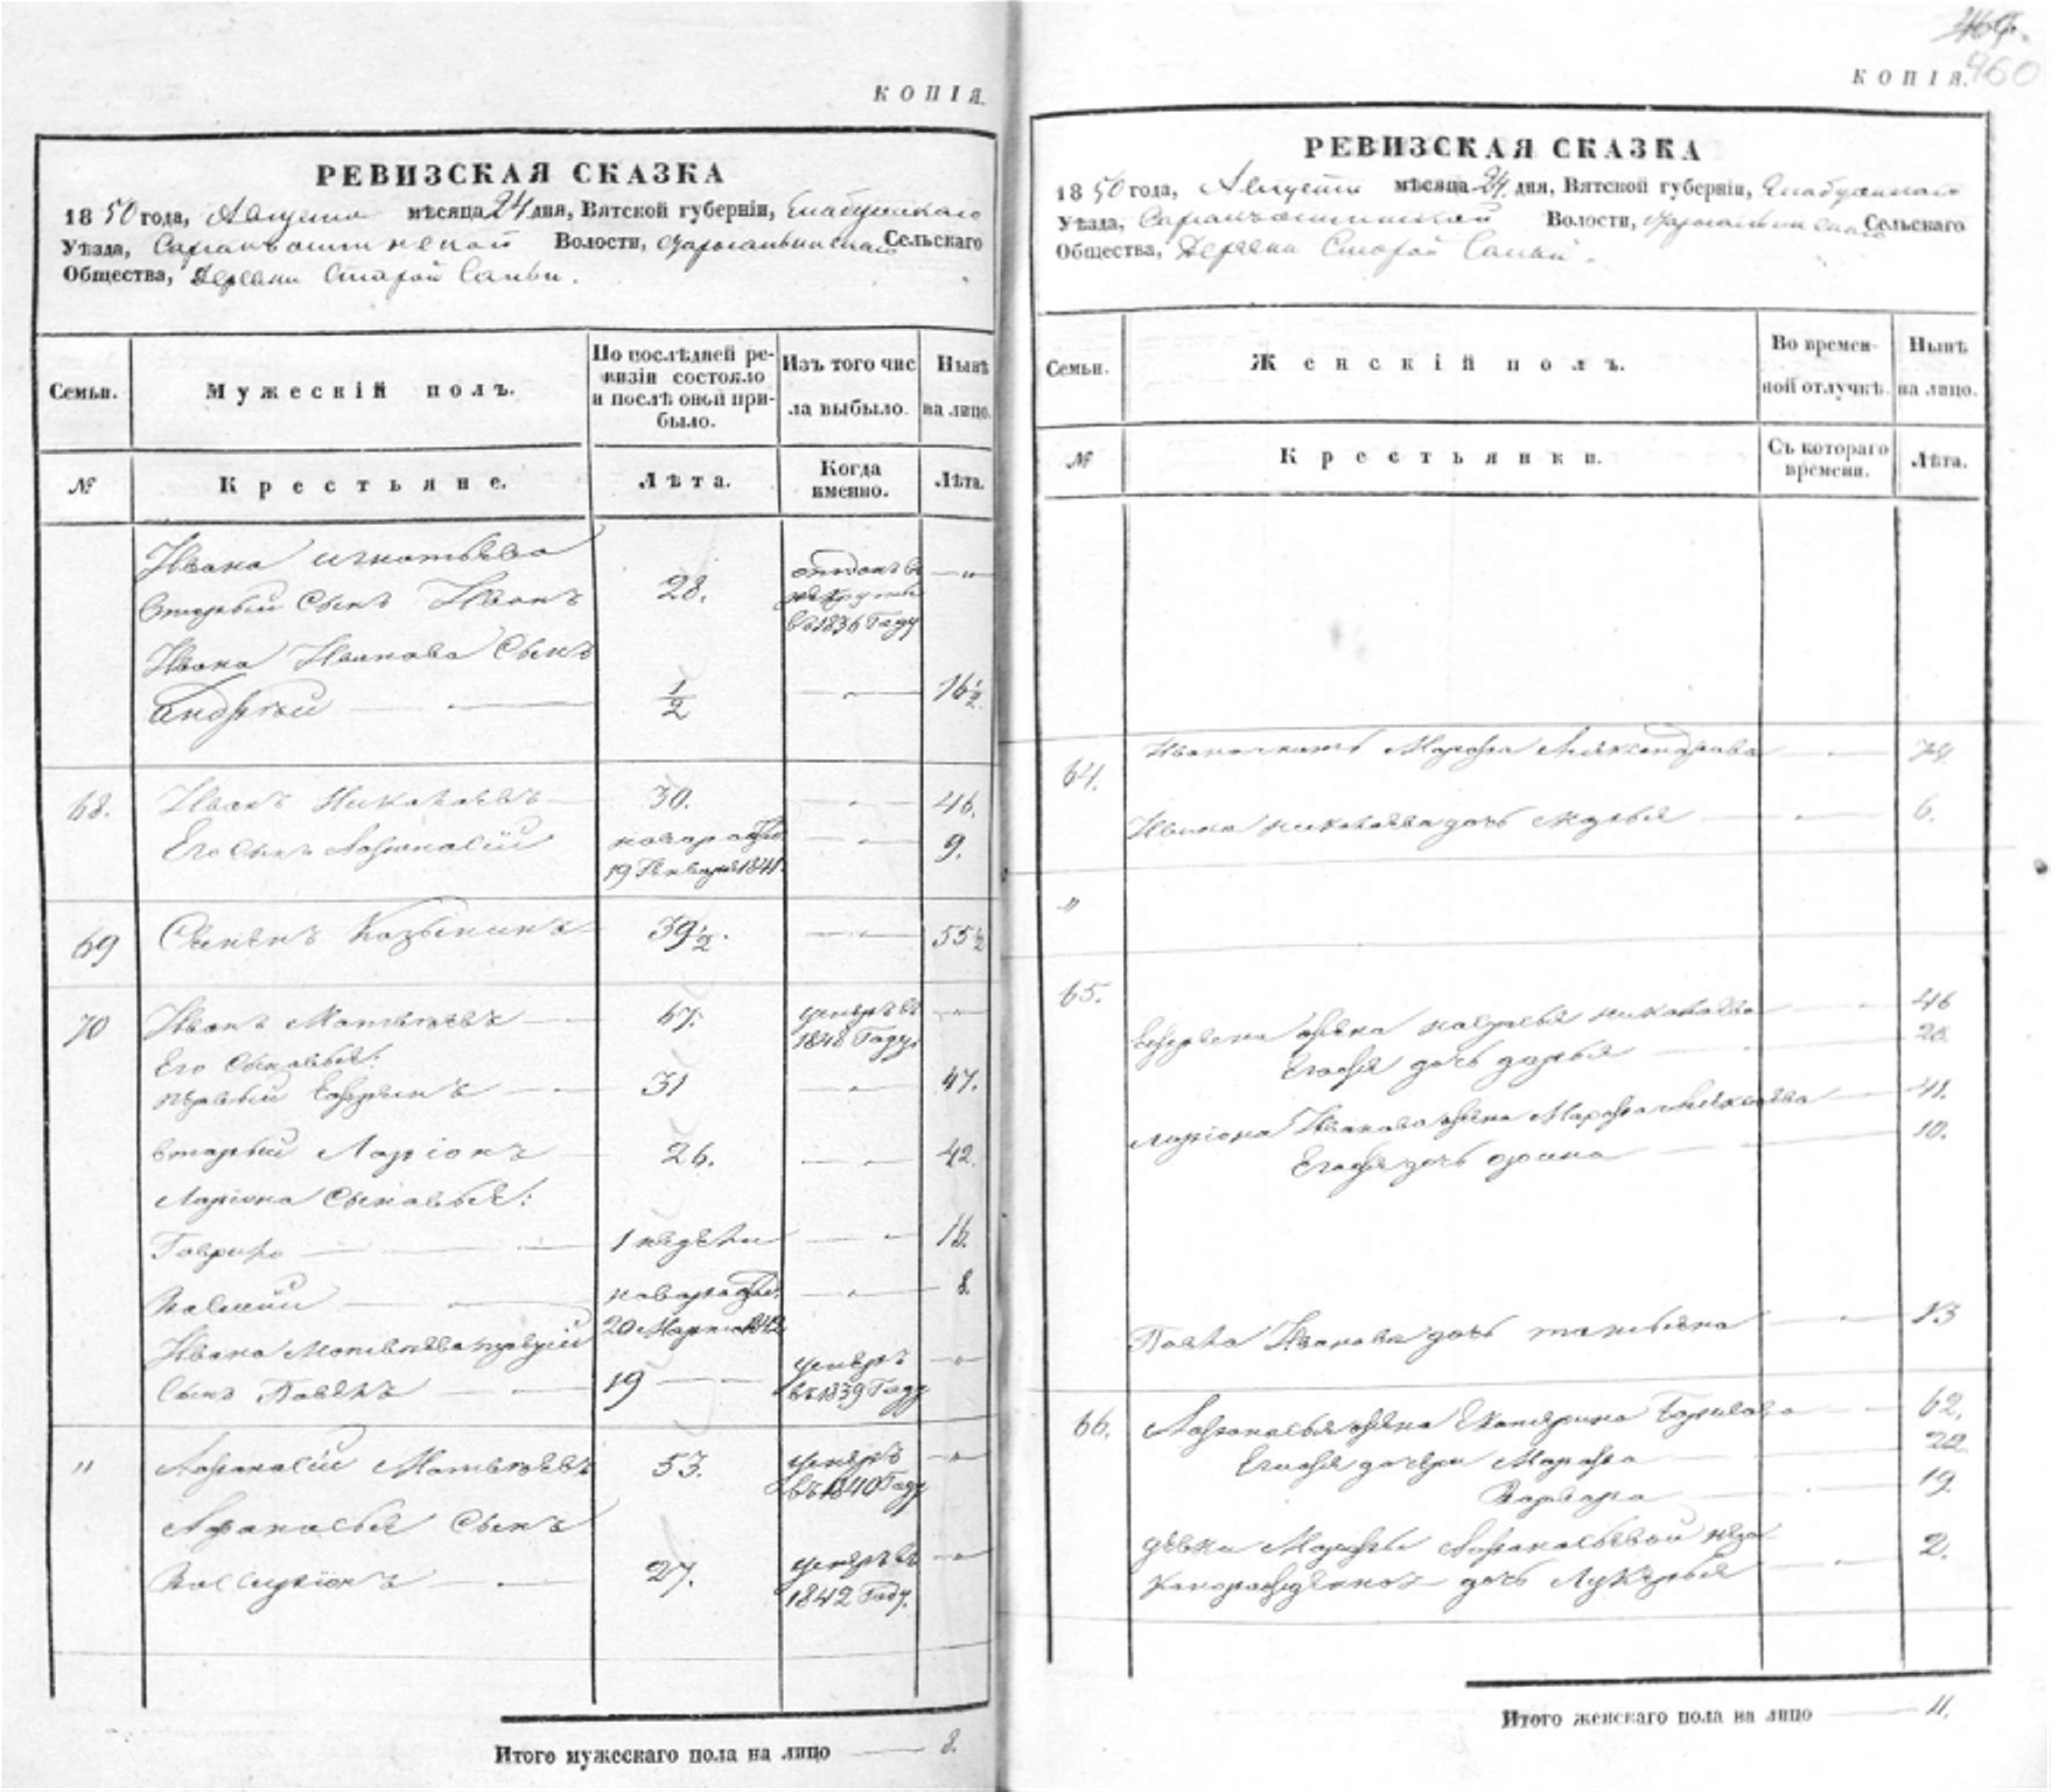 КОПІЯ.
РЕВИЗСКАЯ СКАЗКА
1850 года, Августа мѣсяца 24 дня, Вятской губерніи, Елабужскаго
Уѣзда, Волости, Сельскаго
Общества, Деревни Старой
Семьи.
Мужескій полъ.
По послѣдней ре-
визіи состояло
и послѣ оной при-
было.
Изъ того чис
ла выбыло.
Нынѣ
на лицо.
№
Крестьяне.
Лѣта.
Когда
именно.
Лѣта.
Ивана Игнатьева
вторый сынъ Иванъ 28. отданъ въ рекруты въ 1836 Году — "
Ивана Иванова сынъ
Андрей 1/2 — " — 16 1/2
68. Иванъ Николаевъ 30. — " — 46.
Его сынъ Афонасій новорожден. 19 Генваря 1841 — " — 9.
69 Семенъ Козьминъ 39 1/2. — " — 55 1/2
70 Иванъ Матвѣевъ — 67. умеръ въ 1848 Году — "
Его сыновья:
первый Ефремъ — 31 — " — 47.
вторый Ларіонъ 26. — " — 42.
Ларіона сыновья:
Гаврило — 1 недѣли — " 16.
Василій — новорожден. 20 Марта 1842 — " — 8.
Ивана Матвѣева третій
сынъ Павелъ — 19 — умеръ въ 1839 Году — "
" Афонасій Матвѣевъ 53. умеръ въ 1840 Году — "
Афонасья сынъ
— 27. умеръ въ 1842 Году. — "
Итого мужескаго пола на лицо — 8.
460
КОПІЯ.
РЕВИЗСКАЯ СКАЗКА
1850 года, Августа мѣсяца 24 дня, Вятской губерніи, Елабужскаго
Уѣзда, Волости, Сельскаго
Общества, Деревни Старой
Семьи.
Женскій полъ.
Во времен-
ной отлучкѣ.
Нынѣ
на лицо.
№
Крестьянки.
Съ котораго
времени.
Лѣта.
64. Марфа Александрова — "
Ивана Николаева дочь Марья — " — 6.
"
65. Ефрема жена Настасья Николаева — " 46
Его же дочь Дарья — 20
Ларіона Иванова жена Марфа Алексѣева — 41.
Его же дочь — 10.
Павла Иванова дочь Татьяна — " — 13
66. Афонасья жена Екатерина — " 62.
Его же дочери Марфа — 22
Варвара — " 19.
дѣвки Марфы Афонасьевой неза
коннорожденная дочь Лукерья — " — 2.
Итого женскаго пола на лицо — 11.